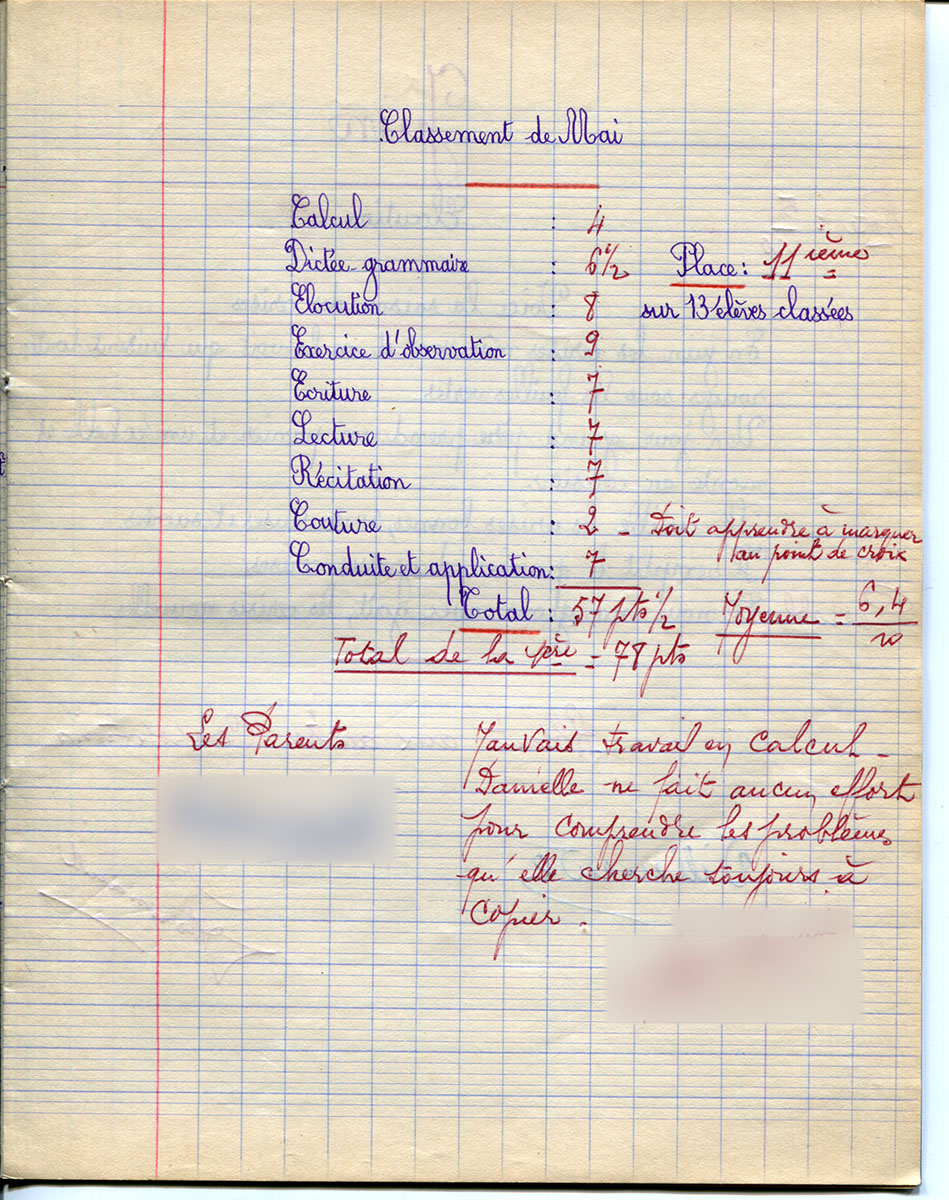 Classement de Mai
Calcul : 4
Dictée-grammaire : 6 1/2 Place : 11ième
Elocution : 8 sur 13 élèves classées
Exercice d'observation : 9
Ecriture : 7
Lecture : 7
Récitation : 7
Couture : 2 - Doit apprendre à marquer
au point de croix
Conduite et application : 7
Total : 57 pts 1/2 Moyenne = 6,4/10
Total de la 1ère = 78 pts
Les Parents
Mauvais travail en calcul -
Danielle ne fait aucun effort
pour comprendre les problèmes
qu'elle cherche toujours à
copier.